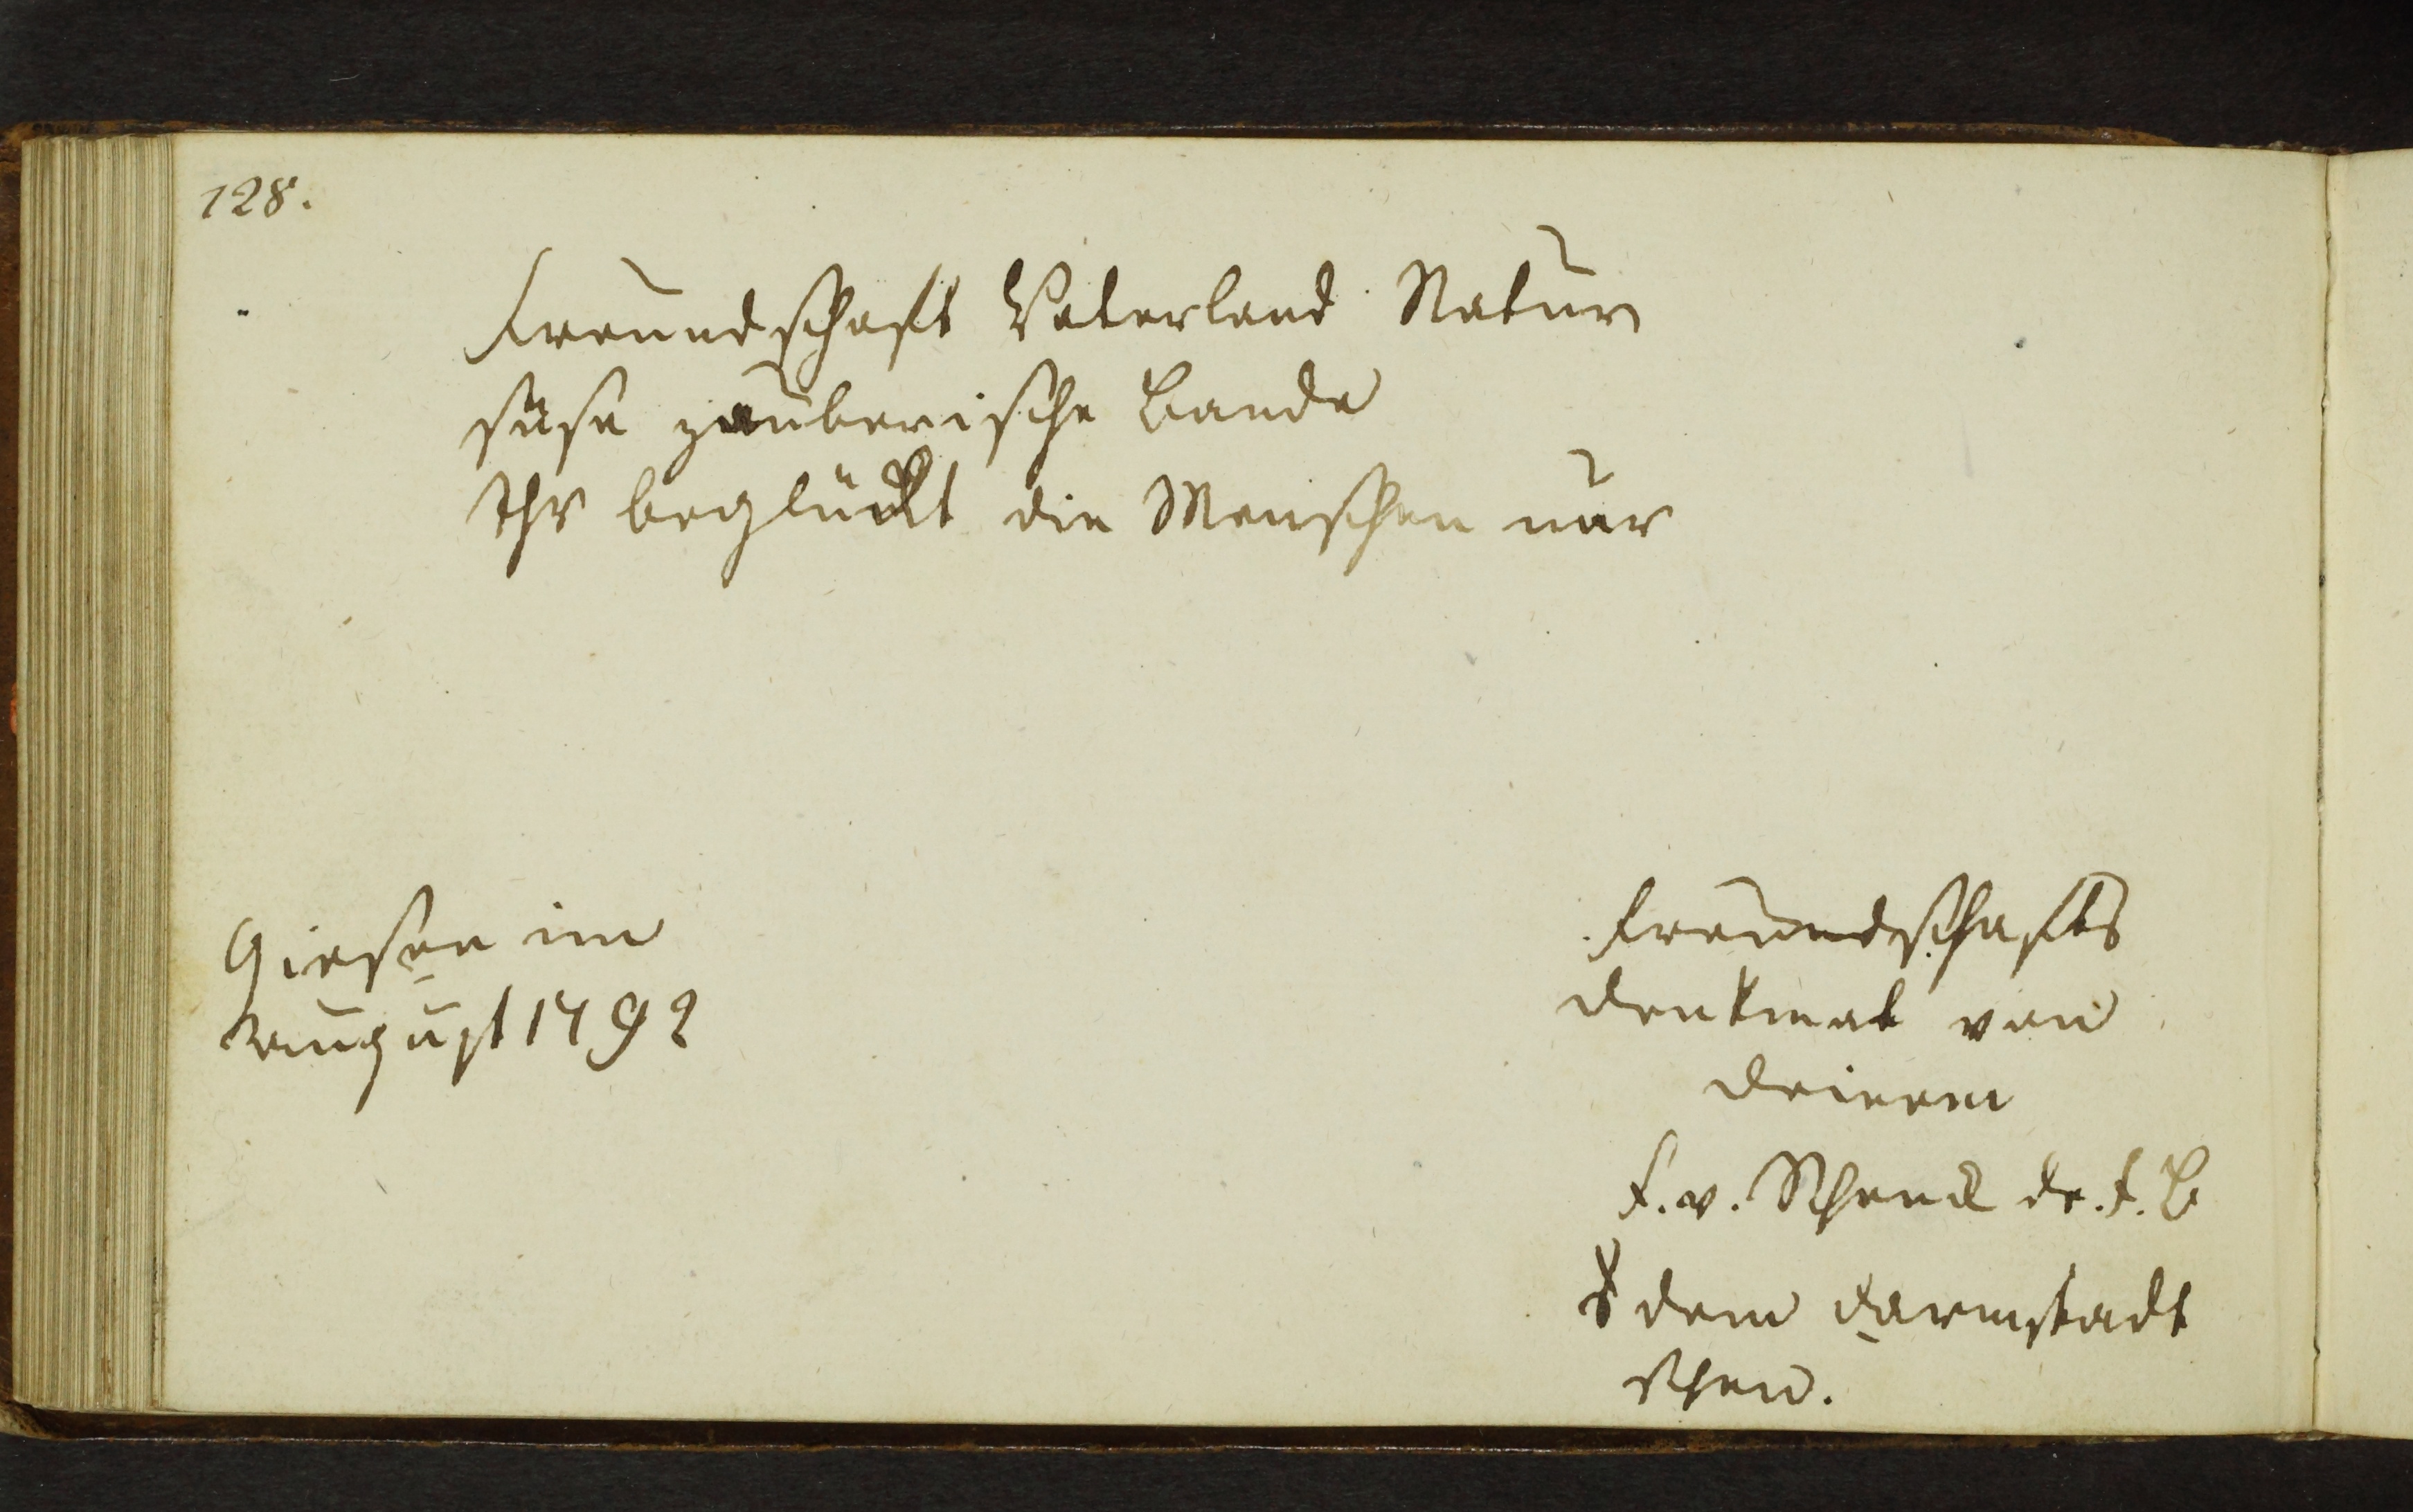 128.
Freundschaft Vaterland Natur
süse zauberische Bande
Ihr beglückt die Menschen nur
Giesen im
August 1792
Freundschafts
denkmal von
Deinem
F. v. Schenck
dem Darmstädt
schen.